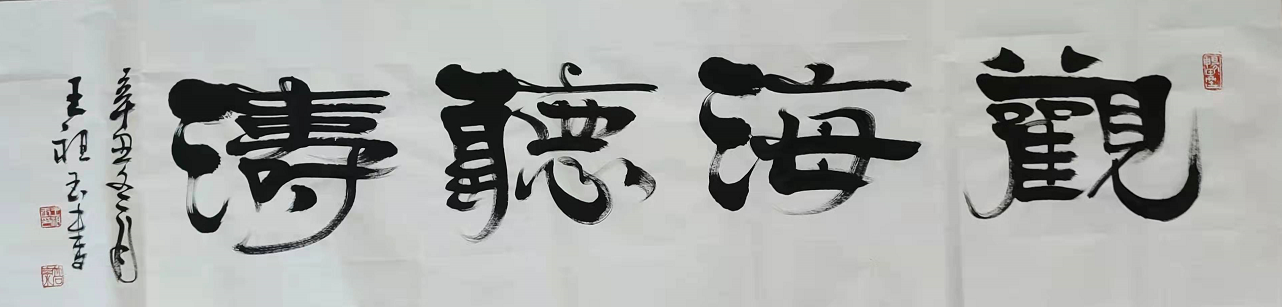 觀海聽濤
辛丑冬月
王祖玉書